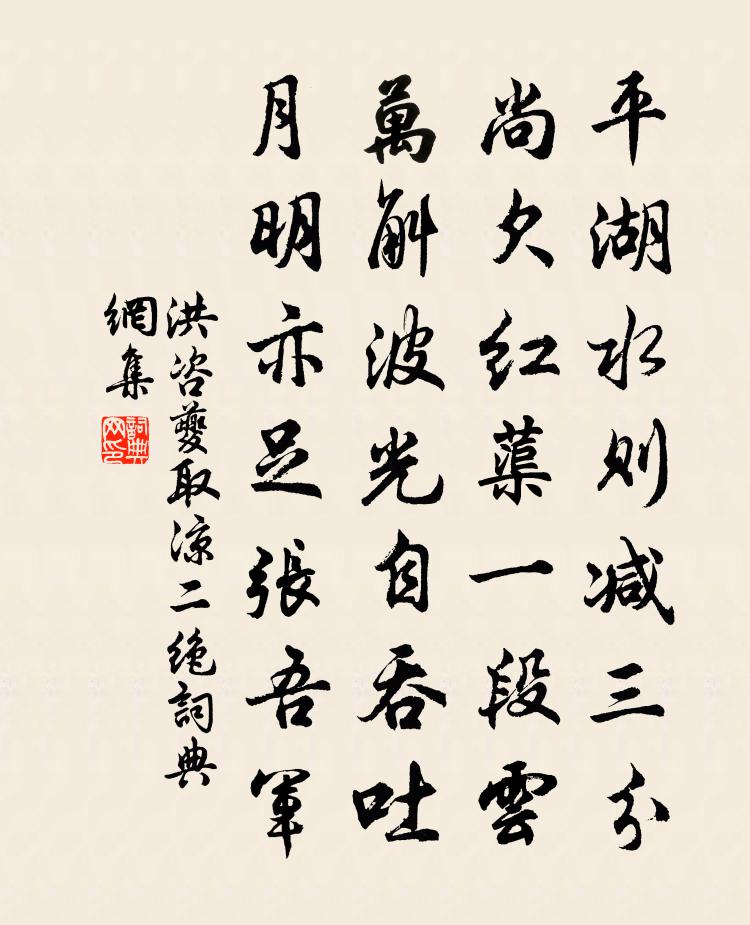 平湖水则减三分
尚欠红蕖一段雲
萬斛波光自吞吐
月明亦足張吾軍
洪咨夔取凉二绝詞典
網集
詞典
网印